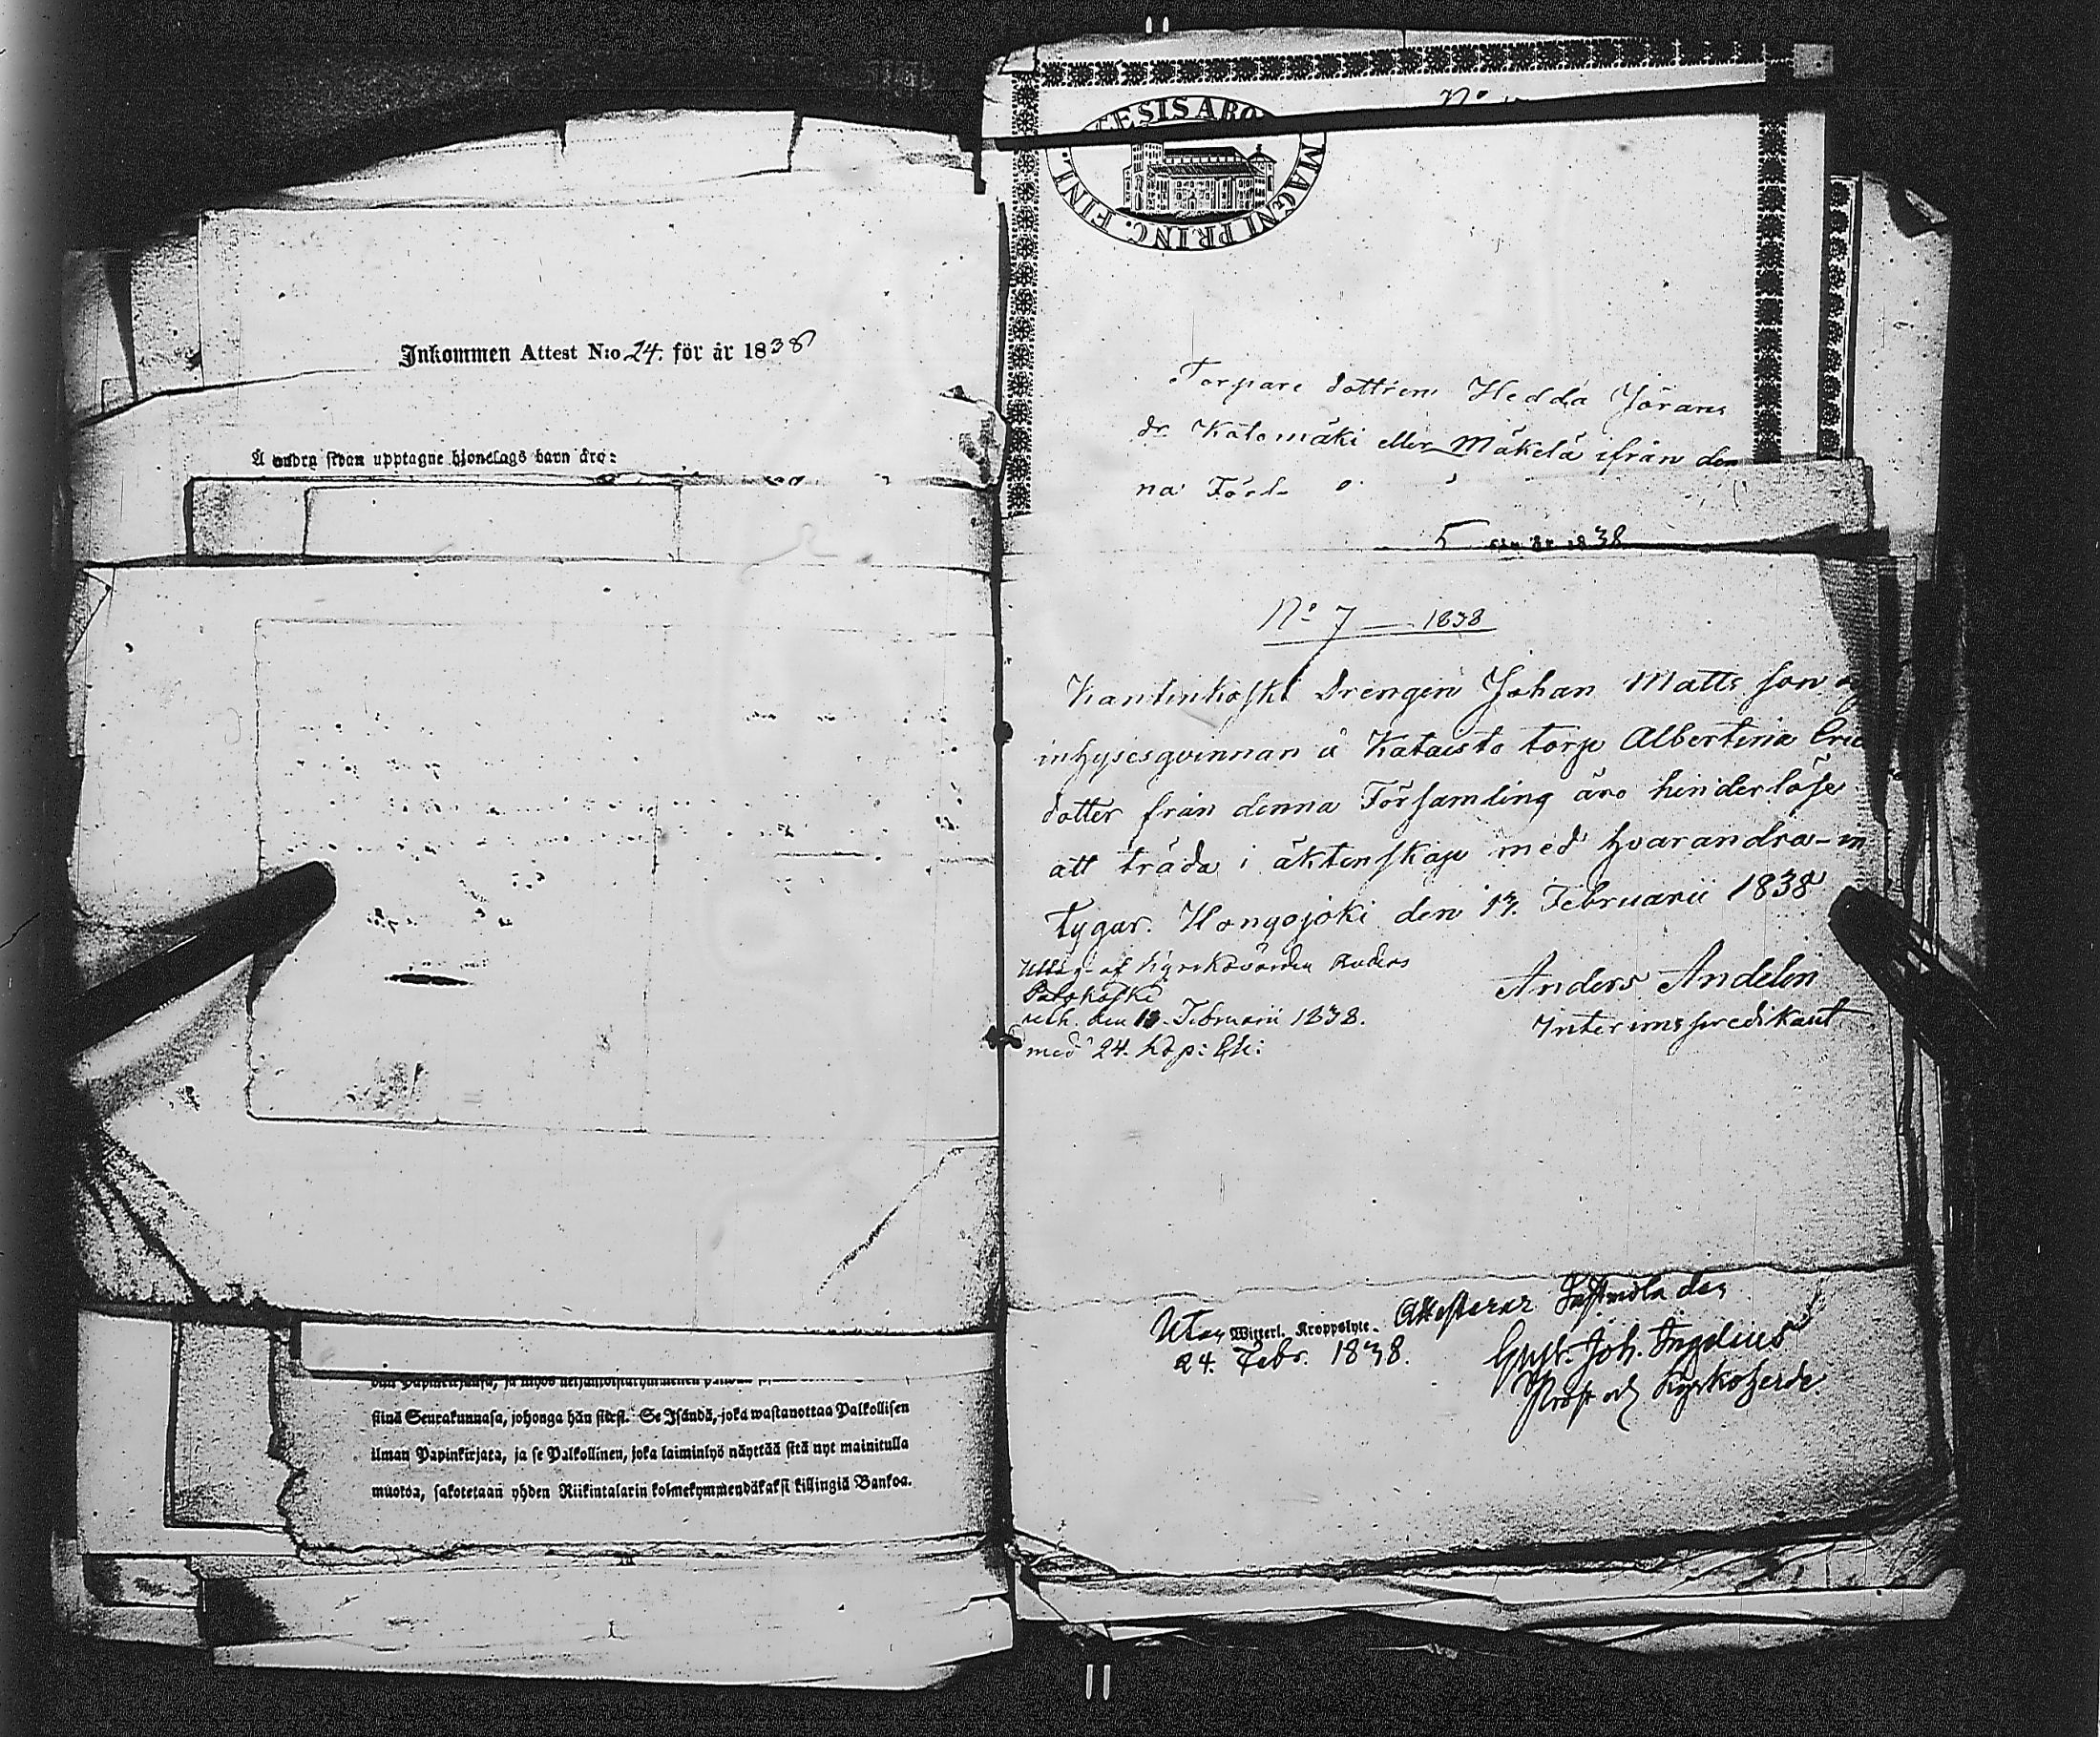 Inkommen Attest N:o 24. för år 1838
Å andra sidan upptagne hjonelags barn äro:
siinä Seurakunnasa, johonga hän siirsi. Se Isändä, joka wastanottaa Palkollisen
ilman Papinkirjata, ja se Palkollinen, joka laiminlyö näyttää sitä nyt mainitulla
muotoa, sakotetaan yhden Riikintalarin kolmekymmendäkaksi killingiä Bankoa.
ESIS ABO MAGNI PRINC. FINL.
N:o
Torpare dottren Hedda Jörans
dr Katomäki eller Mäkelä ifrån den
na Förs
5 för år 1838
No 7 — 1838
Kantinkoski Drengen Johan Matts son
inhysesqvinnan å Kataisto torp Albertina Eric
dotter från denna Församling äro hinderlöse
att träda i äktenskap med hvarandra in
tygar. Hongojoki den 13. Februarii 1838
Anders Andelin
Interims predikant
af Kyrkovärden Anders
Palokoski
den 13. Februarii 1838.
med 24. kop:
Witterl. Kroppslyte.
24. Febr. 1838.
Attesterar den
Gust. Joh. Ingelius
Prost och Kyrkoherde